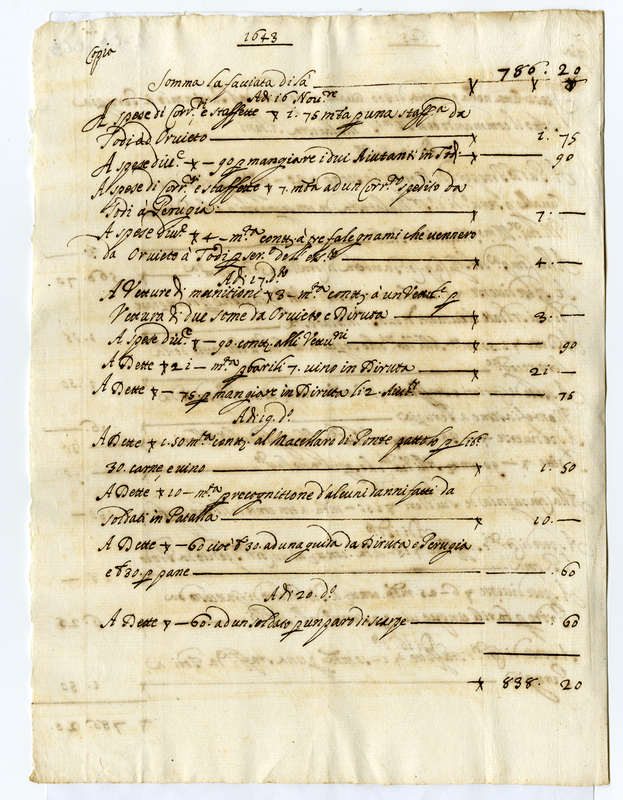 1643
Copia
Somma la facciata di là ▽ 786. 20
Adi 16 Nov.re
A spese di Corr.ri e staffette ▽ 1. 75 m.ta p una staff.a da
Todi ad Orvieto ▽ 1. 75
A spese div.e ▽ — 90 p mangiare i dui Aiutanti in Todi ▽ 90
A spese di Corr.ri e staffette ▽ 7. m.ta ad un Corr.ro spedito da
Todi à Perugia ▽ 7. —
A spese div.e ▽ 4 — m.ta cont.i à tre falegnami che vennero
da Orvieto à Todi p ser.o dell' ▽ 4. —
Adi 17. d.o
A Vetture di munitioni ▽ 3 — m.ta cont.i à un Vett.e p
Vettura di due some da Orvieto e Diruta ▽ 3. —
A spese div.e ▽ — 90 cont.i alli Vettu.ri 90
A Dette ▽ 21 — m.ta p barili 7. vino in Diruta 21 —
A Dette ▽ — 75. p mangiare in Diruta li 2. Aiut.ti 75
Adi 19. d.o
A Dette ▽ 1. 50 m.ta cont.i al Macellaro di Ponte p lib.e
30. carne e vino ▽ 1. 50
A Dette ▽ 10 — m.ta p recognitione d'alcuni danni fatti da
soldati in Patalla ▽ 10. —
A Dette ▽ — 60 cioè b 30. ad una guida da Diruta e Perugia
e b 30. p pane . 60
Adi 20. d.o
A Dette ▽ — 60. ad un soldato p un paro di scarpe . 60
▽ 838. 20